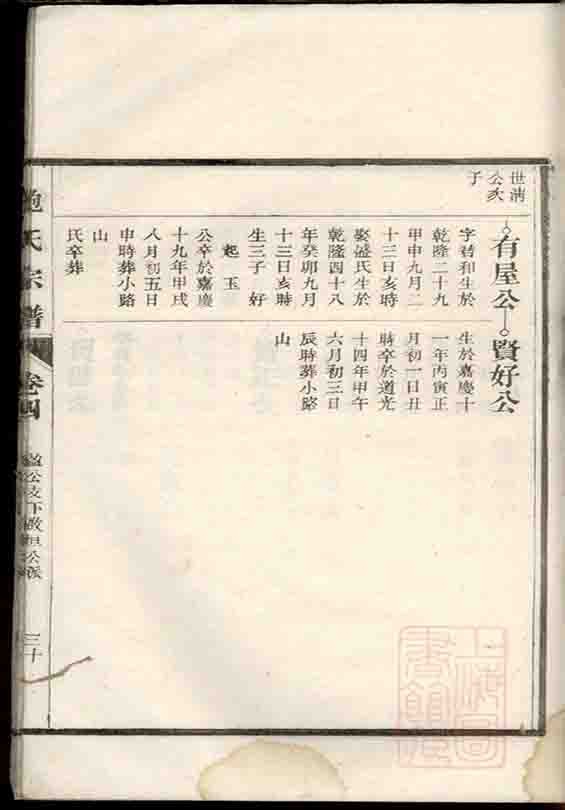 世清
公次
子
有屋公
字啓和生於
乾隆二十九
甲申九月二
十三日亥時
娶盛氏生於
乾隆四十八
年癸卯九月
十三日亥時
生三子 好
起 玉
公卒於嘉慶
十九年甲戌
八月初五日
申時葬小路
山
氏卒葬
賢好公
生於嘉慶十
一年丙寅正
月初一日丑
時卒於道光
十四年甲午
六月初三日
辰時葬小路
山
鮑氏宗譜
卷四
公支下敬旦公派
三十
上海圖書館藏